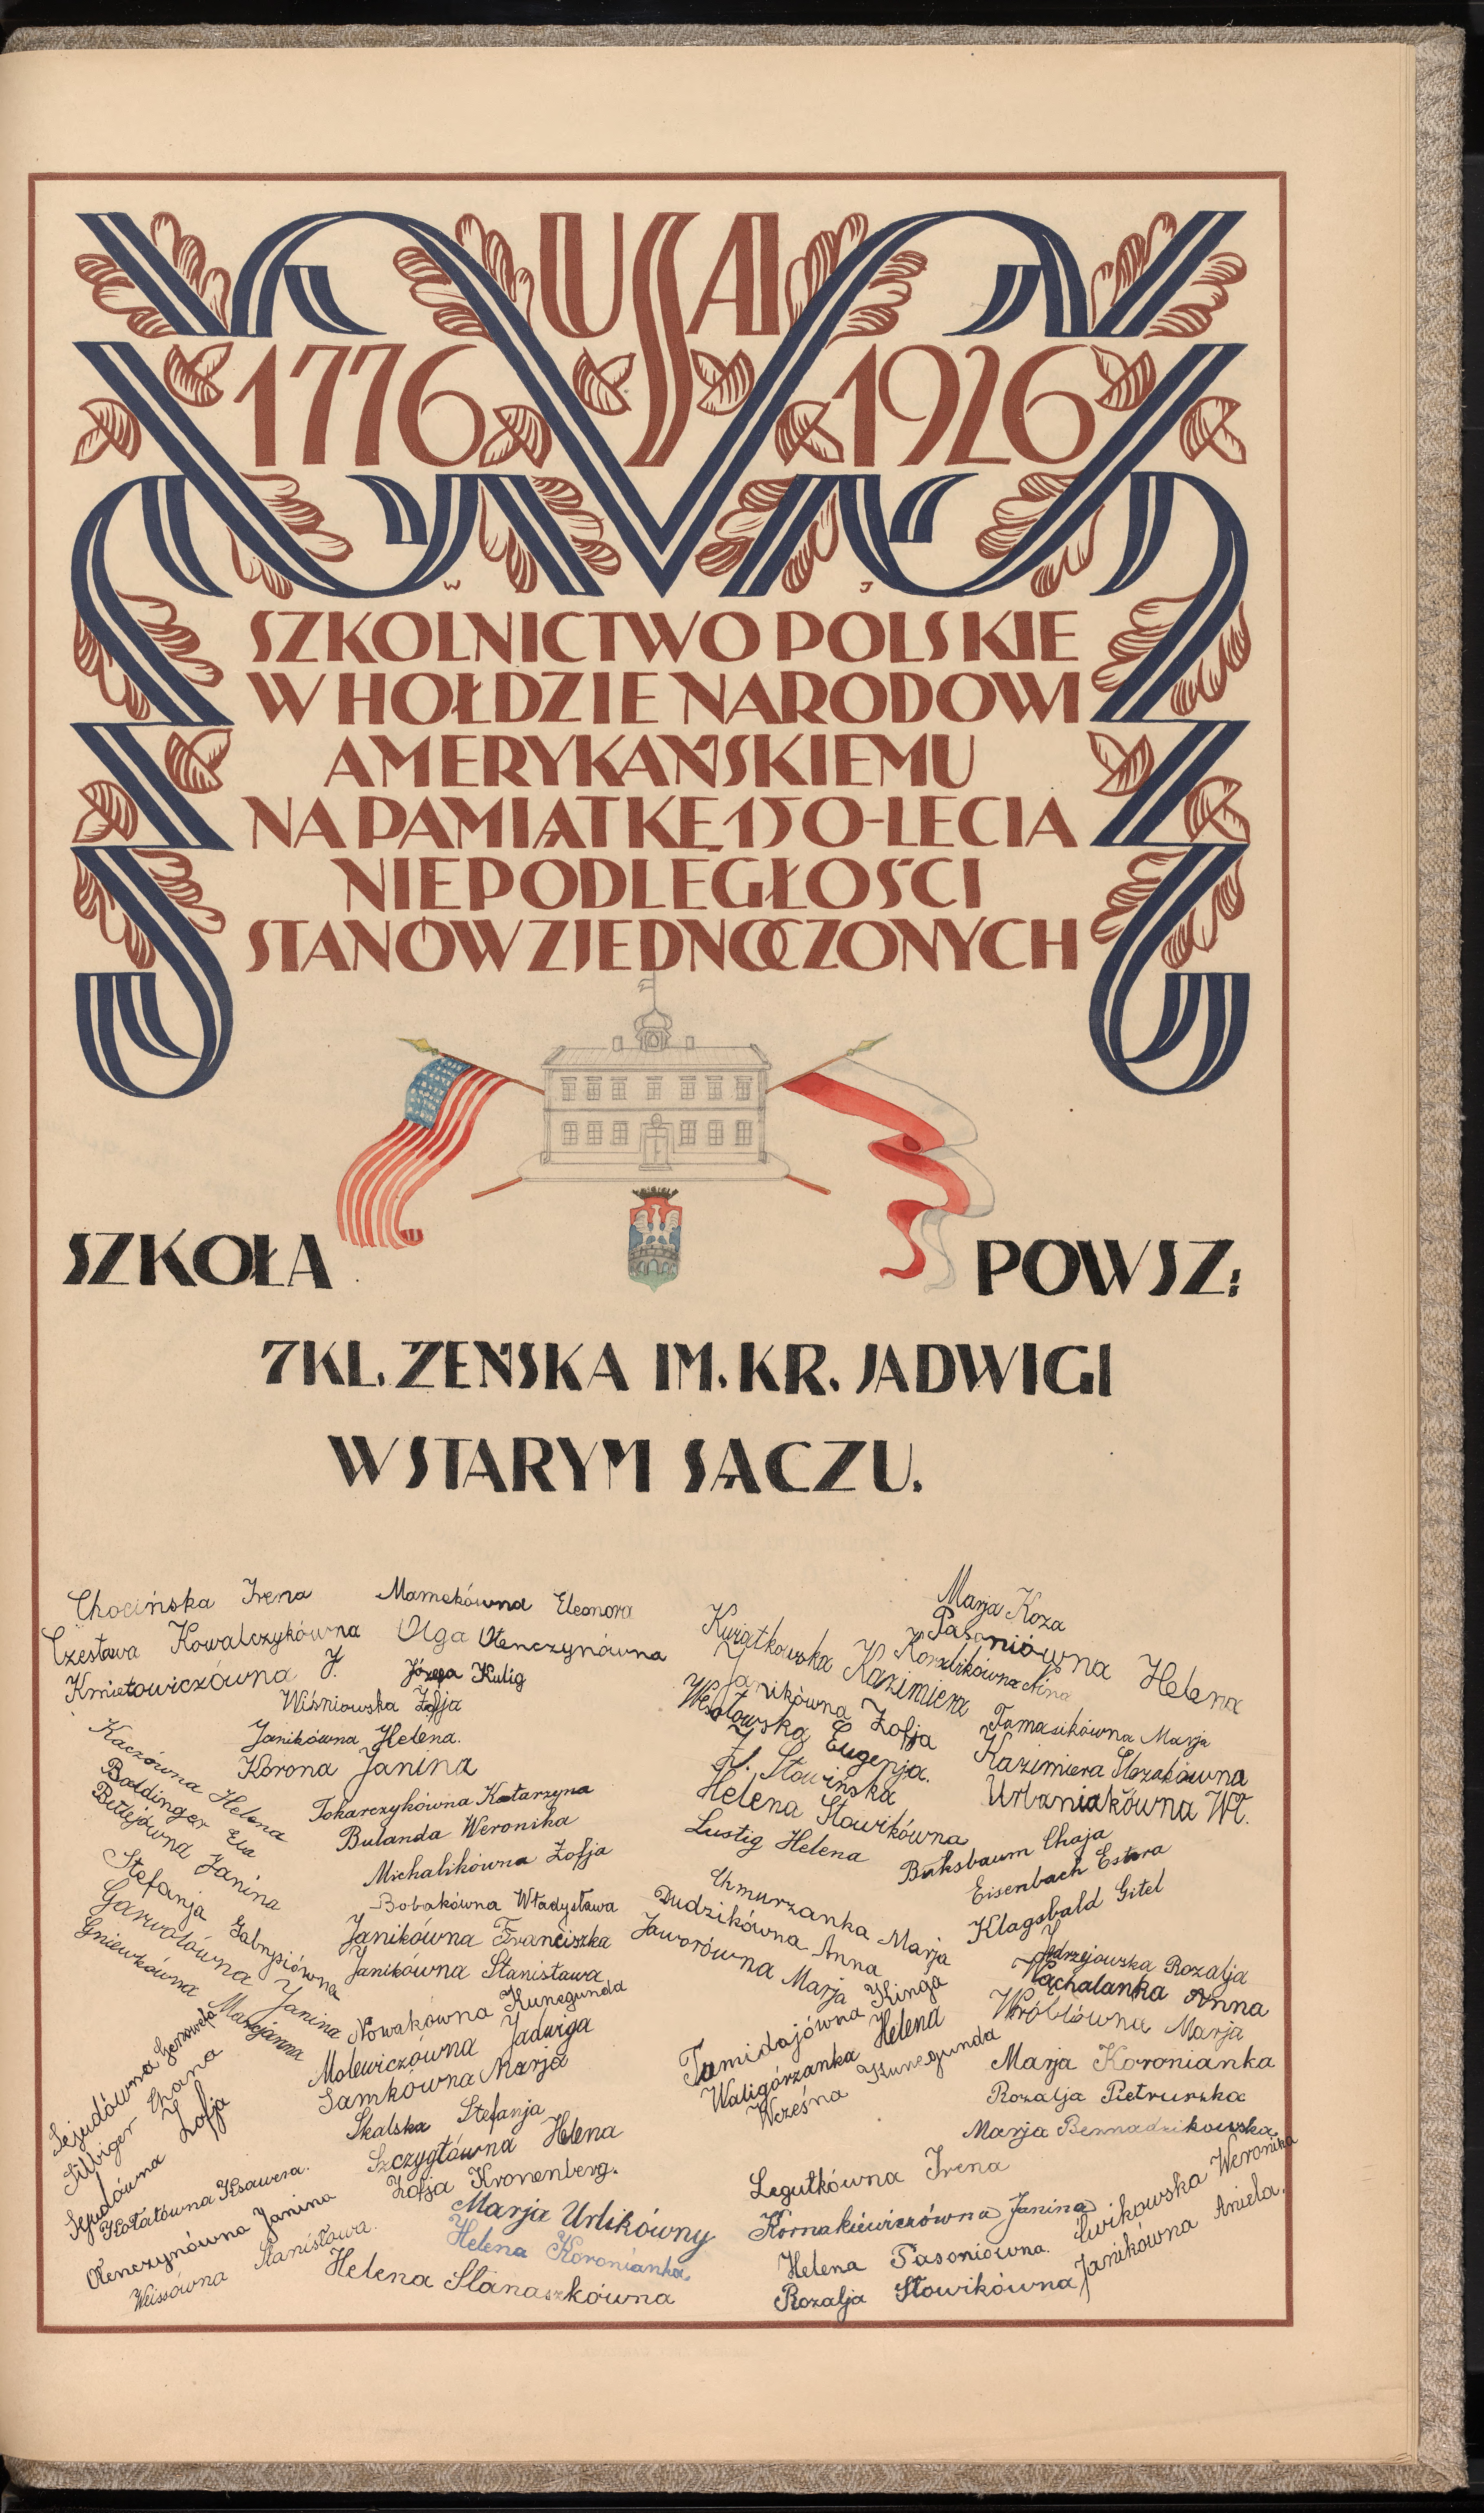 USA
1776 1926
W J
SZKOLNICTWO POLSKIE
W HOŁDZIE NARODOWI
AMERYKAŃSKIEMU
NA PAMIĄTKĘ 150-LECIA
NIEPODLEGŁOŚCI
STANÓW ZJEDNOCZONYCH
SZKOŁA POWSZ:
7KL. ŻEŃSKA IM. KR. JADWIGI
W STARYM SĄCZU.
Chocińska Irena
Czesława Kowalczykówna
Kmietowiczówna J.
Mamakówna Eleonora
Olga Olenczynówna
Józefa Kulig
Wiśniowska Zofja
Janikówna Helena.
Korona Janina
Kaczówna Helena
Baldinger Ewa
Bettejówna Janina
Stefanja Gabrysiówna
Garwolówna Janina
Gniewkówna Marcjanna
Tokarczykówna Katarzyna
Bulanda Weronika
Michalikówna Zofja
Bobakówna Władysława
Janikówna Franciszka
Janikówna Stanisława
Nowakówna Kunegunda
Molewiczówna Jadwiga
Samkówna Marja
Skalska Stefanja
Szczygłówna Helena
Zofja Kronenberg.
Marja Urlikówny
Helena Koronianka.
Helena Stanaszkówna
Sejudówna Genowefa
Silbiger Chana
Sejudówna Zofja
Hołatówna Ksawera.
Olenczynówna Janina
Weissówna Stanisława.
Marja Koza
Pasoniówna Helena
Koszlikówna Nina
Kwiatkowska Kazimiera
Janikówna Zofja
Wesołowska Eugenja.
Zf. Słowińska
Helena Słowikówna
Lustig Helena
Tomasikówna Marja
Kazimiera Ślezakówna
Urbaniakówna Wł.
Buksbaum Chaja
Eisenbach Estera
Klagsbald Gitel
Chmurzanka Marja
Dudzikówna Anna
Jaworówna Marja
Tamidajówna Kinga
Waligórzanka Helena
Wcześna Kunegunda
Jędrzejowska Rozalja
Wąchalanka Anna
Wróblówna Marja
Marja Koronianka
Rozalja Pietruszka
Marja Bernadzikowska
Legutkówna Irena
Kornakiewiczówna Janina
Helena Pasoniówna.
Rozalja Słowikówna
Ćwikowska Weronika
Janikówna Aniela.